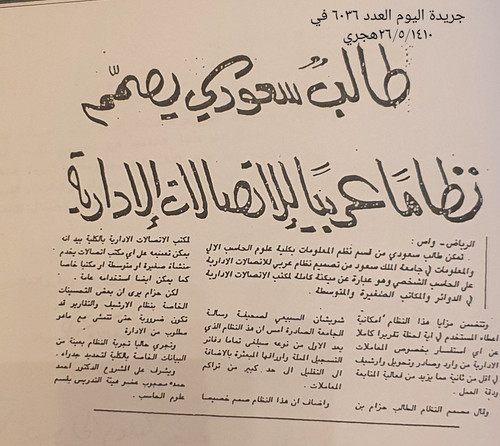 جريدة اليوم العدد ٦٠٣٦ في
٢٦/٥/١٤١٠هجري
طالبٌ سعودي يصمّم
نظامًا عربيًا للإتصالات الإدارية
الرياض - واس :
تمكن طالب سعودي من قسم نظم المعلومات بكلية علوم الحاسب الآلي
والمعلومات في جامعة الملك سعود من تصميم نظام عربي للاتصالات الادارية
على الحاسب الشخصي وهو عبارة عن ميكنة كاملة لمكتب الاتصالات الادارية
في الدوائر والمكاتب الصغيرة والمتوسطة .
وتتضمن مزايا هذا النظام امكانية
اعطاء المستخدم في اية لحظة تقريرا كاملا
عن اي استفسار بخصوص المعاملات
الادارية من وارد وصادر وتحويل وارشيف
في اقل من ثانية مما يزيد من فعالية المتابعة
ودقة العمل .
وقال مصمم النظام الطالب حزام بن
شويشان السبيعي لصحيفة رسالة
الجامعة الصادرة امس ان هذا النظام الذي
يعد الاول من نوعه سيلغي تماما دفاتر
التسجيل المملة واوراقها المبعثرة بالاضافة
الى التقليل الى حد كبير من تراكم
المعاملات .
واضاف ان هذا النظام صمم خصيصا
لمكتب الاتصالات الادارية بالكلية بيد انه
يمكن تعميمه على اي مكتب اتصالات يخدم
منشأة صغيرة او متوسطة او مكتبا خاصا
كما يمكن ايضا استخدامه عامة .
لكن حزام يرى ان بعض التحسينات
الخاصة بنظام الارشيف والتقارير قد
تكون ضرورية حتى تتمشى مع ماهو
مطلوب من الادارة
وتجرى حاليا تجربة النظام بعينة من
البيانات الخاصة بالكلية لتحديد جدواه .
ويشرف على المشروع الدكتور احمد
حمده محبوب عضو هيئة التدريس بقسم
علوم الحاسب .